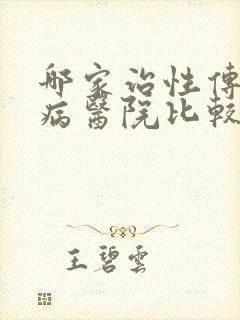 哪家治性傳
病醫院比較
王碧雲